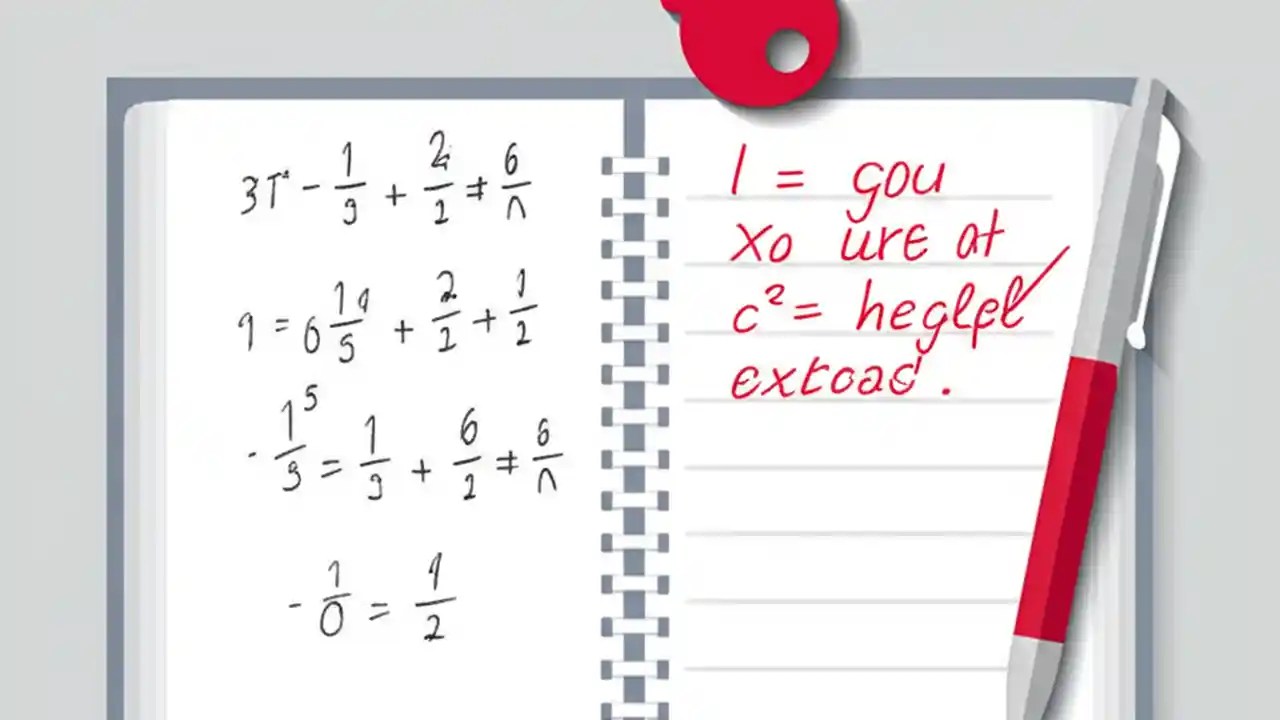 3T - 1/3 + 2/2 ≠ 6/n
9 = 6 19/5 + 2/2 + 1/2
- 1⁵/3 = 1/3 + 6/2 ≠ 6/n
- 1/0 = 1/2
l = gou
xo ure at
c² = heglel
extoad.